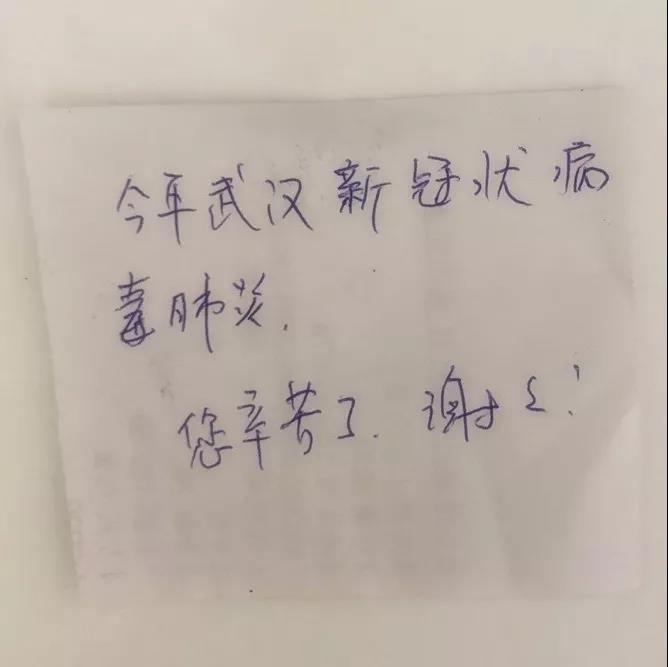 今年武汉新冠状病
毒肺炎.
您辛苦了.谢〻!